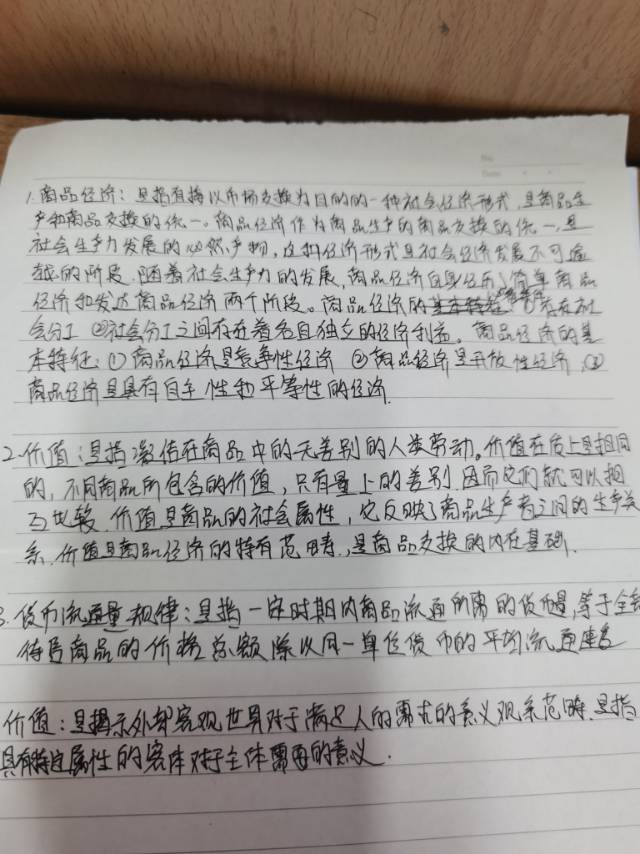 No
Date
1.商品经济：是指直接以市场交换为目的的一种社会经济形式，是商品生
产和商品交换的统一。商品经济作为商品生产的商品交换的统一，是
社会生产力发展的必然产物，这种经济形式是社会经济发展不可逾
越的阶段.随着社会生产力的发展，商品经济自身经历了简单商品
经济和发达商品经济两个阶段。商品经济的 ①存在社
会分工 ②社会分工之间存在着各自独立的经济利益。商品经济的基
本特征：①商品经济是竞争性经济 ②商品经济是开放性经济.③
商品经济是具有自主性和平等性的经济.
2.价值：是指凝结在商品中的无差别的人类劳动。价值在质上是相同
的，不同商品所包含的价值，只有量上的差别.因而它们就可以相
互比较 价值是商品的社会属性，它反映了商品生产者之间的生产关
系.价值是商品经济的特有范畴，是商品交换的内在基础.
3.货币流通量规律：是指一定时期内商品流通所需的货币量，等于全部
待售商品的价格总额除以同一单位货币的平均流通速度
价值：是揭示外部客观世界对于满足人的需求的意义观系范畴.是指
具有特定属性的客体对于主体需要的意义.